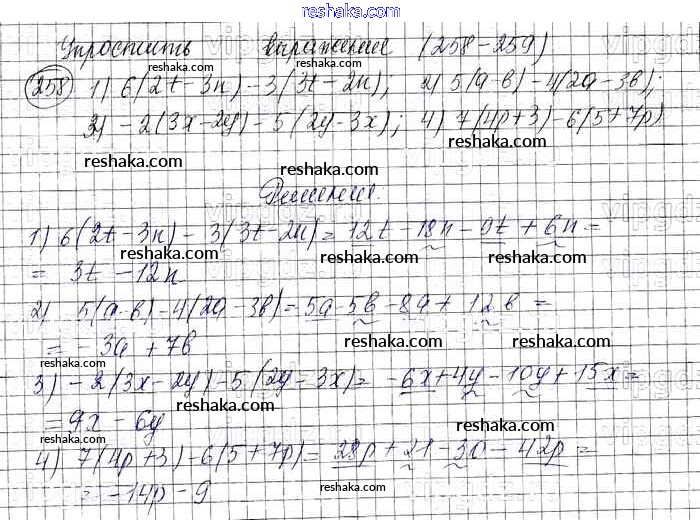 reshaka.com
Упростить выражение (258-259)
258 1) 6(2t-3n)-3(3t-2n); 2) 5(a-b)-4(2a-3b);
3) -2(3x-2y)-5(2y-3x); 4) 7(4p+3)-6(5+7p)
reshaka.com reshaka.com reshaka.com
Решение:
1) 6(2t-3n)-3(3t-2n)=12t-18n-9t+6n=
= 3t-12n
2) 5(a-b)-4(2a-3b)=5a-5b-8a+12b=
= -3a+7b
3) -2(3x-2y)-5(2y-3x)= -6x+4y-10y+15x=
=9x-6y
4) 7(4p+3)-6(5+7p)=28p+21-30-42p=
= -14p-9
reshaka.com